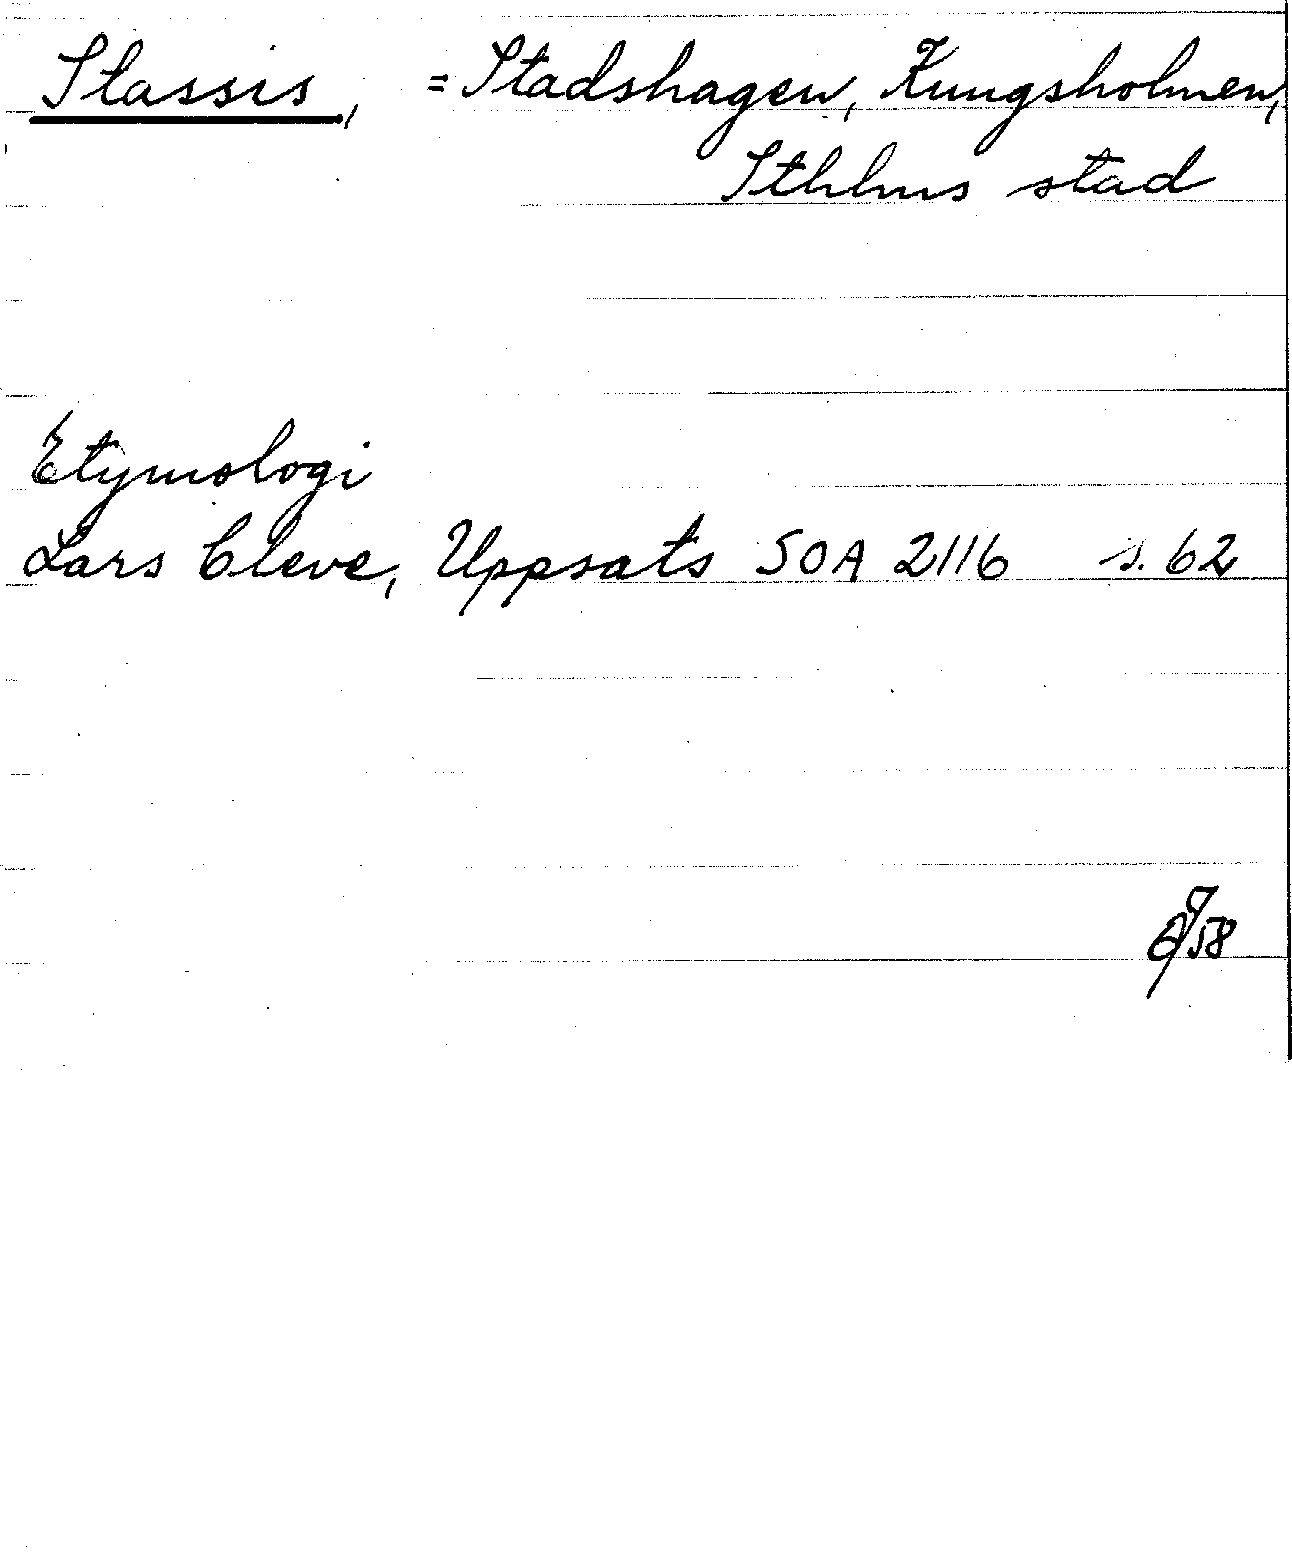 Stassis, = Stadshagen, Kungsholmen,
Sthlms stad
Etymologi
Lars Cleve, Uppsats SOA 2116 s. 62